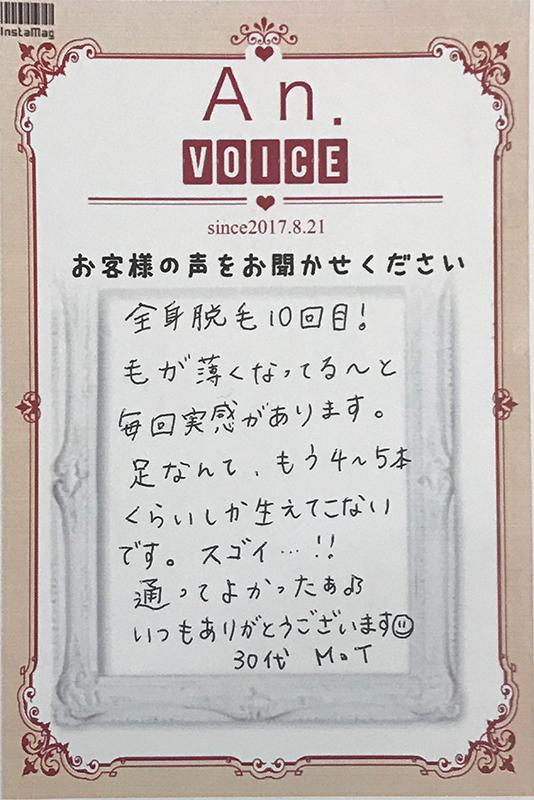 InstaMag
An.
VOICE
since2017.8.21
お客様の声をお聞かせください
全身脱毛10回目!
毛が薄くなってる〜と
毎回実感があります。
足なんて、もう4〜5本
くらいしか生えてこない
です。スゴイ…!!
通ってよかったぁ♪
いつもありがとうございます☺
30代 M.T